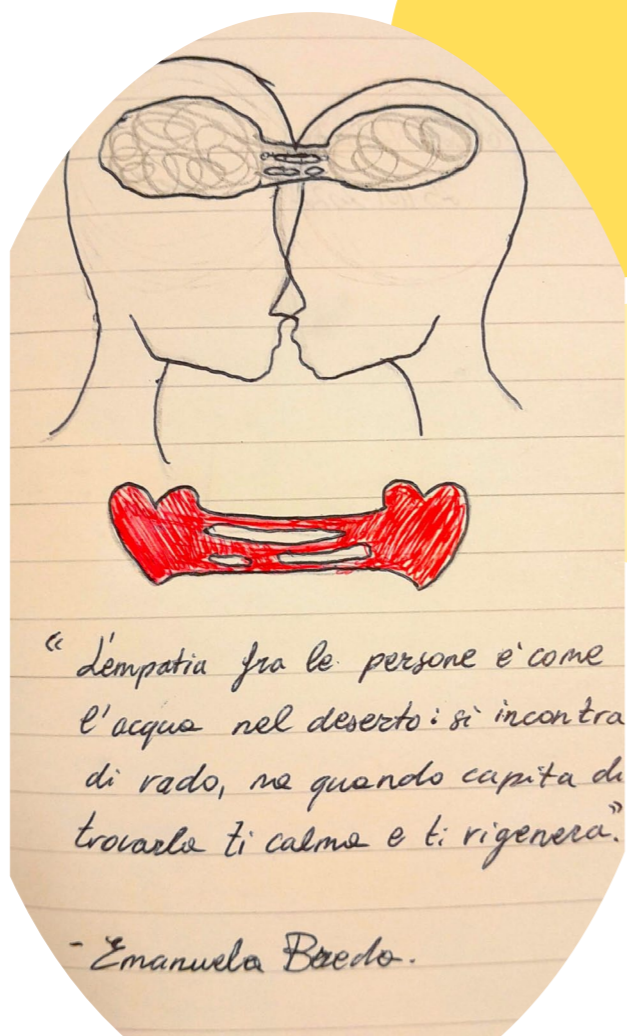 “ L'empatia fra le persone è come
l'acqua nel deserto: si incontra
di rado, ma quando capita di
trovarla ti calma e ti rigenera.”
- Emanuela Breda.